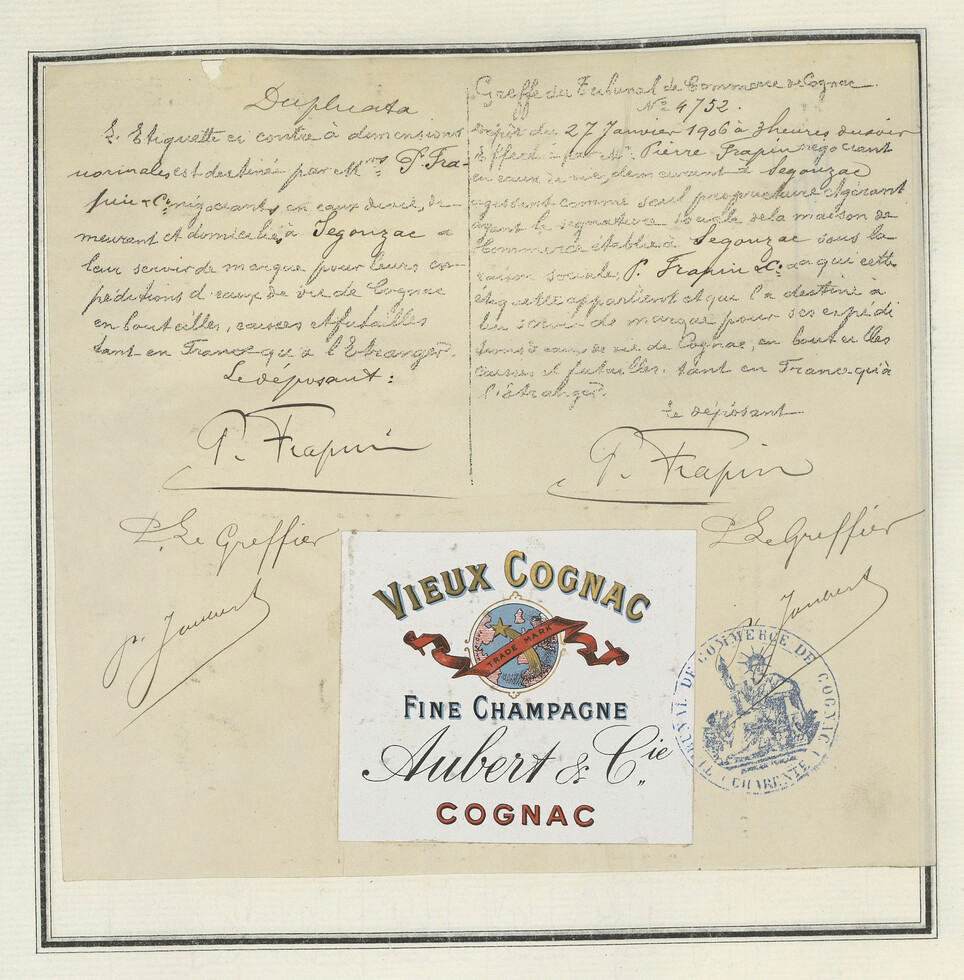 Duplicata
L'Etiquette ci contre à dimensions
normales est destinée par MMrs P. Fra-
pin & Co négociants en eaux de vie, de-
meurant et domiciliés à Segonzac a
leur servir de marque pour leurs ex-
péditions d'eaux de vie de Cognac
en bouteilles, caisses et futailles
tant en France qu'à l'Etranger.
Le déposant:
P. Frapin
P. Le Greffier
p. Joubert
Greffe du Tribunal de Commerce de Cognac
No 4752.
Dépôt du 27 Janvier 1906 à 3 heures du soir
Effectué par Mr. Pierre Frapin négociant
en eaux de vie, demeurant à Segonzac
agissant comme seul propriétaire et gérant
ayant la signature sociale de la maison de
Commerce établie à Segonzac sous la
raison sociale, P. Frapin & Co a qui cette
étiquette appartient et qui l'a destiné à
lui servir de marque pour ses expédi
tions d'eaux de vie de Cognac, en bouteilles
caisses et futailles. tant en France qu'à
l'étranger.
Le déposant
P. Frapin
P. Le Greffier
Joubert
VIEUX COGNAC
TRADE MARK
FINE CHAMPAGNE
Aubert & Cie
COGNAC
TRIBUNAL DE COMMERCE DE COGNAC
CHARENTE